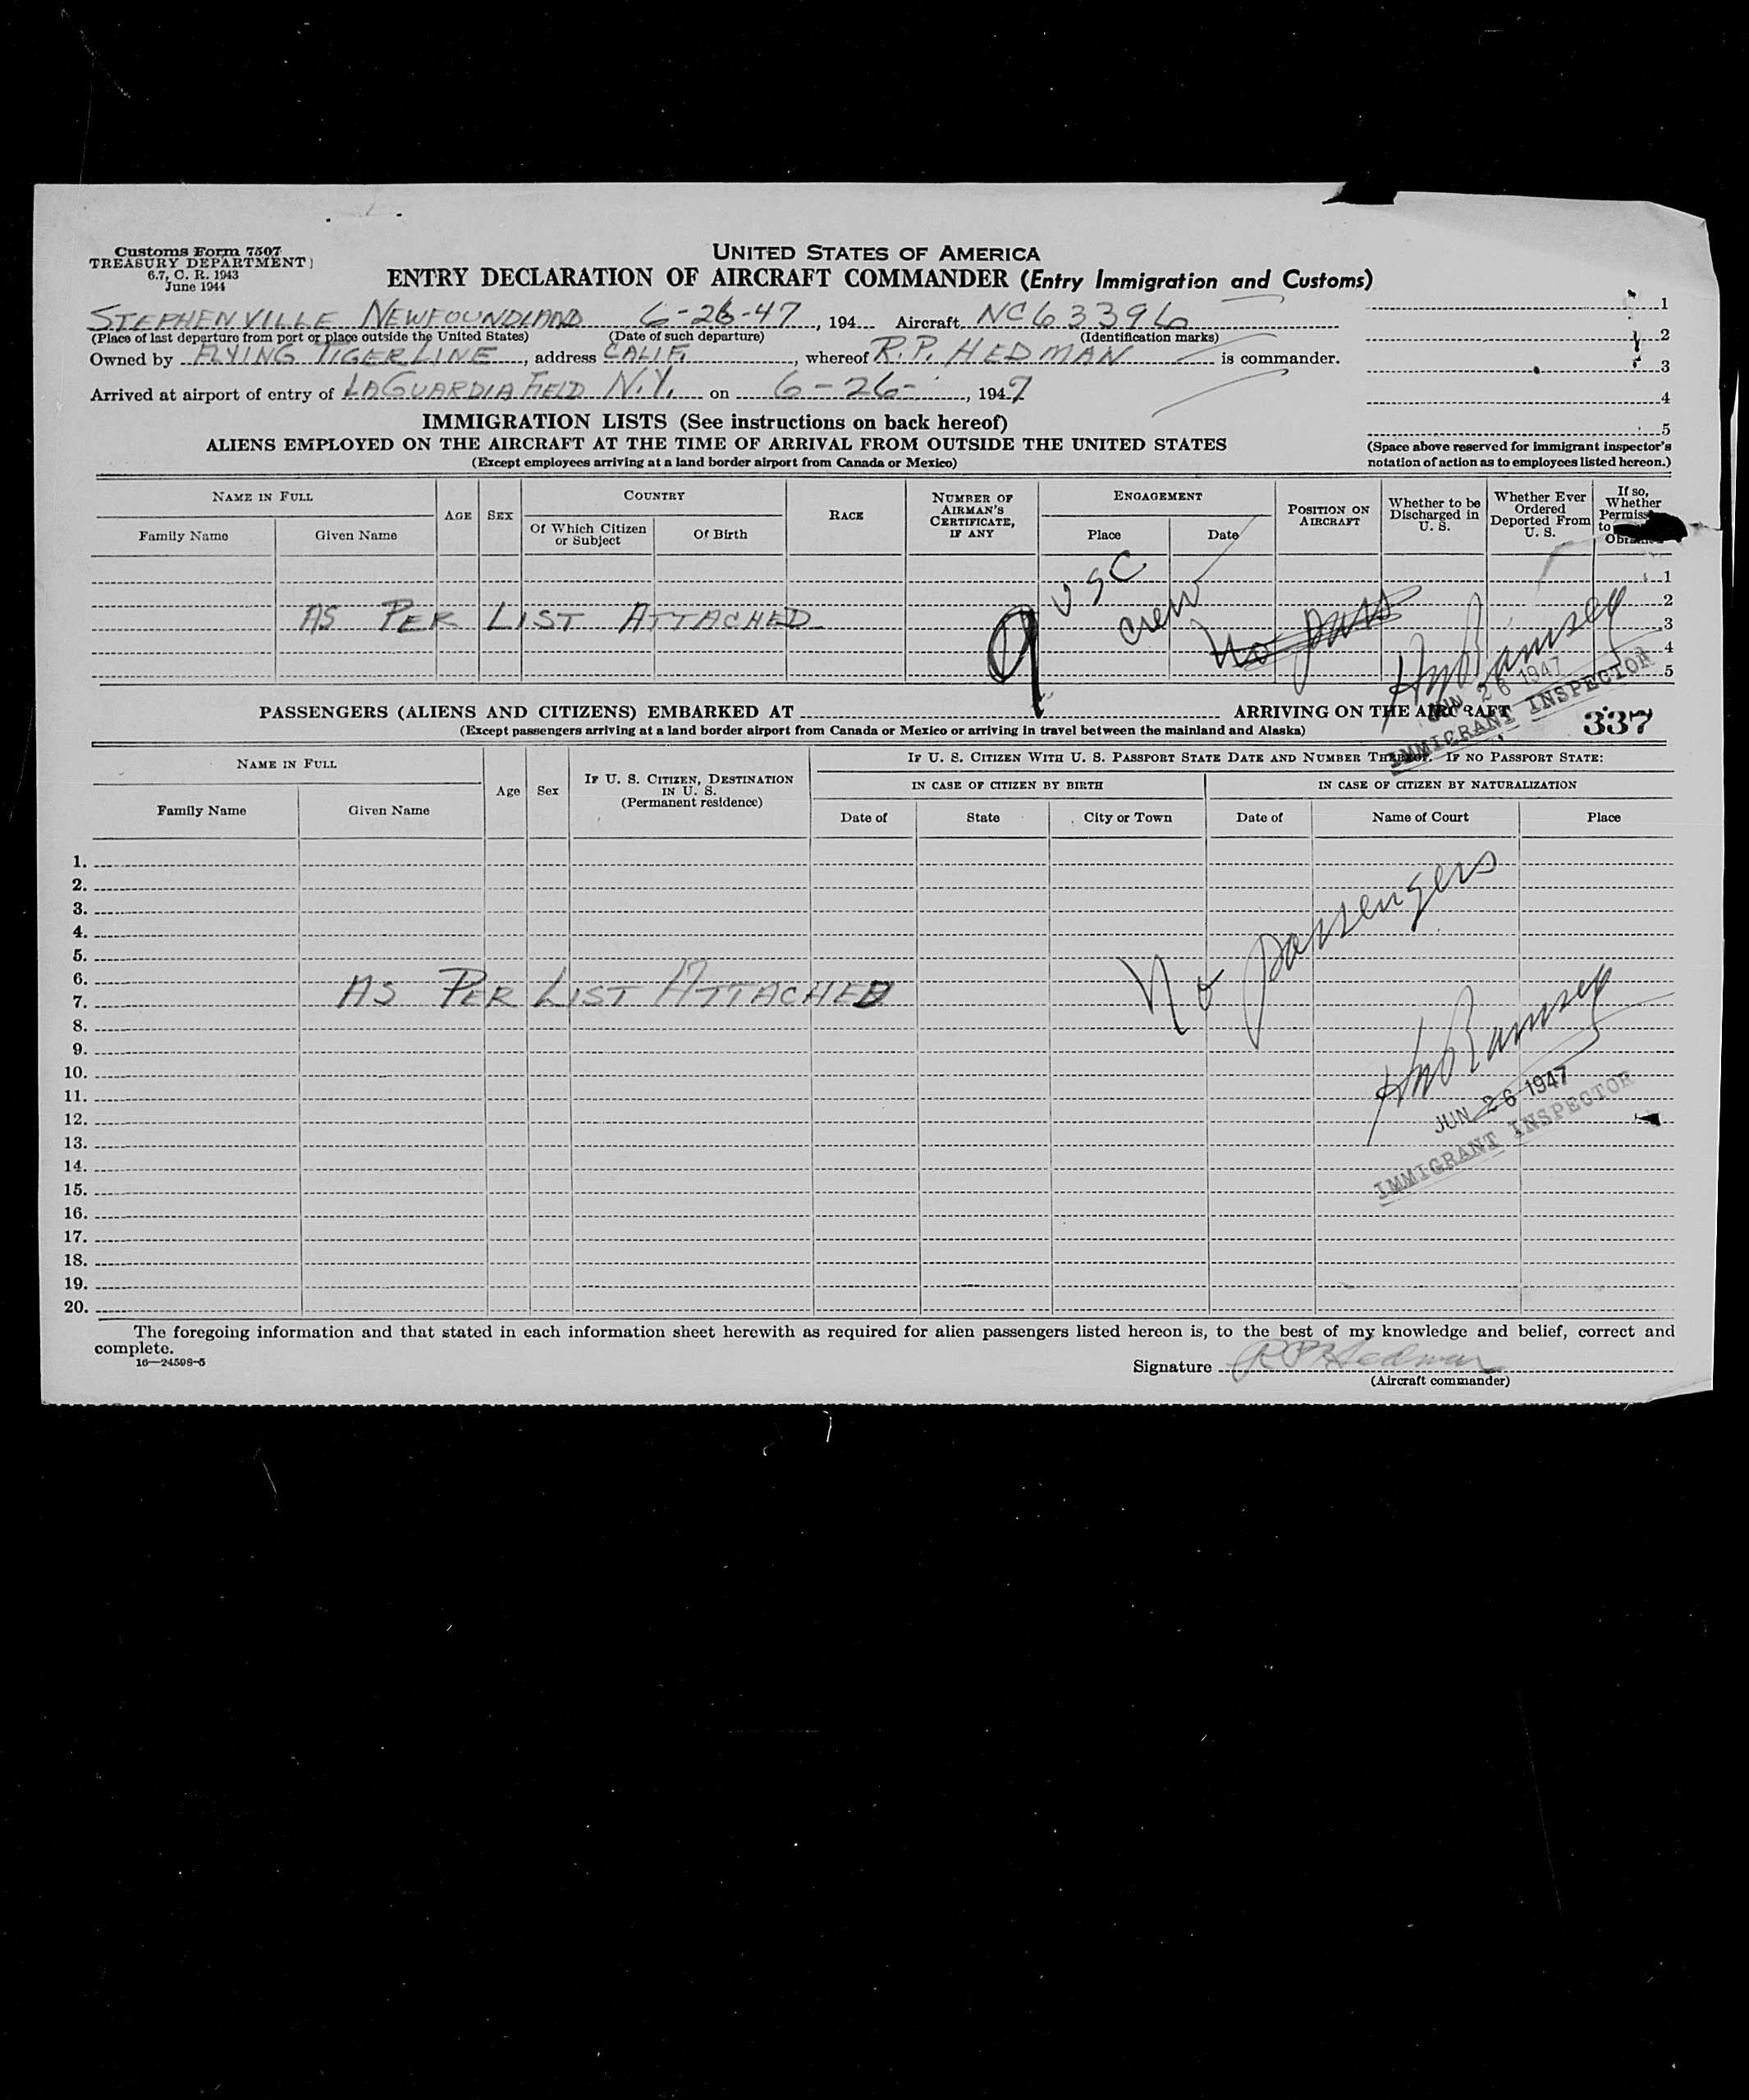 Customs Form 7507
TREASURY DEPARTMENT
6.7, C. R. 1943
June 1944
UNITED STATES OF AMERICA
ENTRY DECLARATION OF AIRCRAFT COMMANDER (Entry Immigration and Customs)
STEPHENVILLE NEWFOUNDLAND 6-26-47, 194 Aircraft NC63396
(Place of last departure from port or place outside the United States) (Date of such departure) (Identification marks)
Owned by FLYING TIGER LINE, address CALIF., whereof R.P. HEDMAN is commander.
Arrived at airport of entry of LAGUARDIA FIELD N.Y. on 6-26-, 1947
1
2
3
4
5
(Space above reserved for immigrant inspector's
notation of action as to employees listed hereon.)
IMMIGRATION LISTS (See instructions on back hereof)
ALIENS EMPLOYED ON THE AIRCRAFT AT THE TIME OF ARRIVAL FROM OUTSIDE THE UNITED STATES
(Except employees arriving at a land border airport from Canada or Mexico)
NAME IN FULL
Family Name
Given Name
AGE
SEX
COUNTRY
Of Which Citizen or Subject
Of Birth
RACE
NUMBER OF AIRMAN'S CERTIFICATE, IF ANY
ENGAGEMENT
Place
Date
POSITION ON AIRCRAFT
Whether to be Discharged in U. S.
Whether Ever Ordered Deported From U. S.
If so, Whether
to
1
2
3
4
5
AS PER LIST ATTACHED
9 USC
crew
No pass
HmRamsey
JUN 26 1947
IMMIGRANT INSPECTOR
PASSENGERS (ALIENS AND CITIZENS) EMBARKED AT ARRIVING ON THE AIRCRAFT
337
(Except passengers arriving at a land border airport from Canada or Mexico or arriving in travel between the mainland and Alaska)
NAME IN FULL
Family Name
Given Name
Age
Sex
IF U. S. CITIZEN, DESTINATION IN U. S.
(Permanent residence)
IF U. S. CITIZEN WITH U. S. PASSPORT STATE DATE AND NUMBER THEREOF. IF NO PASSPORT STATE:
IN CASE OF CITIZEN BY BIRTH
IN CASE OF CITIZEN BY NATURALIZATION
Date of
State
City or Town
Date of
Name of Court
Place
1.
2.
3.
4.
5.
6.
7.
8.
9.
10.
11.
12.
13.
14.
15.
16.
17.
18.
19.
20.
AS PER LIST ATTACHED
No passengers
HmRamsey
JUN 26 1947
IMMIGRANT INSPECTOR
The foregoing information and that stated in each information sheet herewith as required for alien passengers listed hereon is, to the best of my knowledge and belief, correct and
complete.
16—24598-5
Signature RP Hedman
(Aircraft commander)